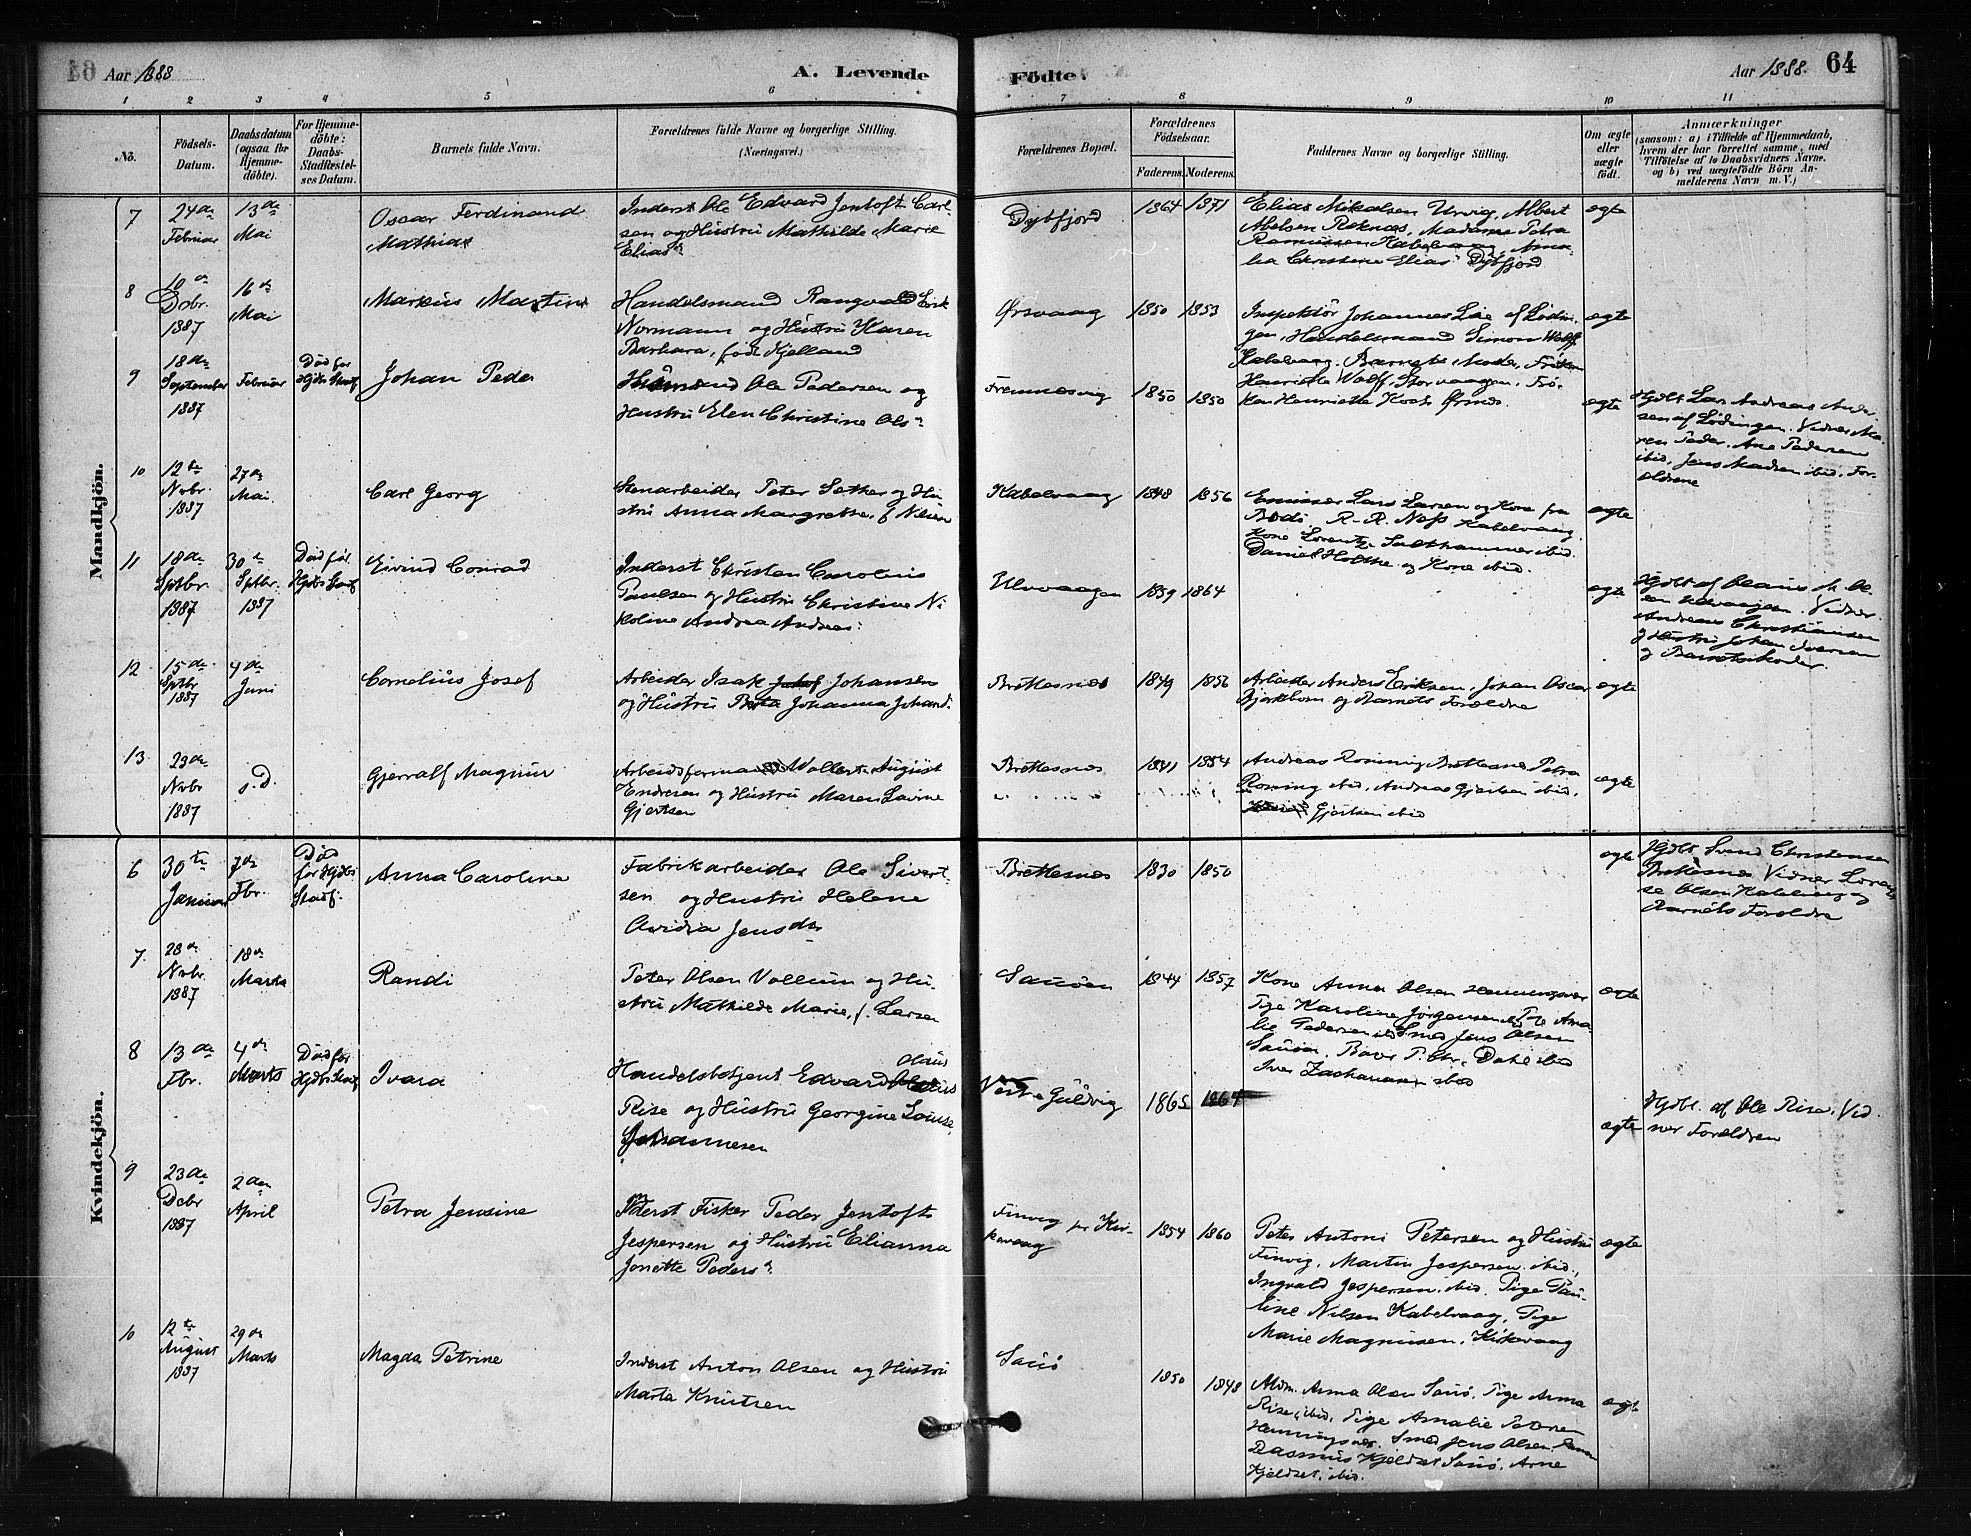 Aar 1888
A. Levende
Födte.
Aar 1888.
64
1 2 3 4 5 6 7 8 9 10 11
No.
Födsels-
Datum.
Daabsdatum
(ogsaa for
Hjemme-
döbte).
For Hjemme-
döbte:
Daabs-
Stadfæstel-
ses Datum.
Barnets fulde Navn.
Forældrenes fulde Navne og borgerlige Stilling.
(Næringsvei.)
Forældrenes Bopæl.
Forældrenes
Födselsaar.
Faderens. Moderens.
Faddernes Navne og borgerlige Stilling.
Om ægte
eller
uægte
født.
Anmærkninger
(saasom: a) i Tilfælde af Hjemmedaab,
hvem der har forrettet samme, med
Tilföielse af to Daabsvidners Navne.
og b) ved uægtefødte Börn An-
melderens Navn m. V.)
Mandkjön.
7
24de
Februar
13de
Mai
Oscar Ferdinand
Mathias
Inderst Ole Edvard Jentoft Carl-
sen og Hustru Mathilde Marie
Elias
Dybfjord
1864 1871
Elias Mikalsen Urvig, Albert
Abelsen Reknæs, Madame Petra
Rasmussen Kabelvaag, Ama-
lia Christine Elias Dybfjord
ægte
8
10de
Dcbr.
1887
16de
Mai
Markus Martin
Handelsmand Rangvald Erik
Normann og Hustru Karen
Barbara, född Kjelland
Ørsvaag
1850 1853
Inspektör Johannes Lie af Lödin-
gen, Handelsmand Simon Wolff
Kabelvaag. Barnets Moder, Fröken
Henriette Wolff, Storvaagan. Frö-
ken Henriette Koch Ørsnes.
ægte
9
18de
September
1887
Februar
Död for
Hjdbs Stadf
Johan Peder
Ole Pedersen og
Hustru Elen Christine Ols
1850 1850
ægte
Hjdbt Lars Andreas Ander-
sen af Lödingen. Vidner Ma-
ren Peder, Ane Pedersen
ibid, Jens Madsen ibid. For-
ældrene
10
12te
Nvbr.
1887
27de
Mai.
Carl Georg
Stenarbeider Peter Sether og Hu-
stru Anna Margrethe, f Nilsen
Kabelvaag
1848 1856
Emissær Lars Larsen og Kone fra
Bodö. R. R. Næss Kabelvaag
Kone Lorentze Salthammer ibid.
Daniel Holthe og Kone ibid.
ægte
11
18de
Sptbr.
1887
30te
Sptbr.
1887
Död før
Hjdbs Stadf
Eivind Conrad
Inderst Christen Carolius
Paulsen og Hustru Christine Ni-
koline Andrea Andreas
Ulvaagen
1859 1864
ægte
Hjdbt af Olaus M. Ol-
sen Ulvaagen. Vidner
Andreas Christiansen
og Hustru Johan Iversen
og Barnets Moder.
12
15de
Sptbr
1887
4de
Juni
Cornelius Josef
Arbeider Isak Johansen
og Hustru Johanna Johand.
Brettesnæs
1849 1856
Arbeider Anders Eriksen, Johan Oscar
Björkbom og Barnets Forældre
ægte
13
23de
Nvbr
1887
s. D.
Gjerralf Magnus
Arbeidsformand Vollert August
Endresen og Hustru Maren Lovine
Gjertsen
Brettesnæs
1841 1854
Andreas Roning Brettesnæs Petra
Roning ibid, Andreas Gjertsen ibid.
Gjertsen ibid
ægte
Kvindekjön.
6
30te
Januar
7de
Fbr.
Död
for Hjdbs
Stadf.
Anna Caroline
Fabrikarbeider Ole Sivert-
sen og Hustru Helene
Ovidia Jensdtr
Brettesnæs
1830 1850
ægte
Hjdbt Svend Christensen
Brettesnæs Vidner Loren-
se Olsen Kabelvaag og
Barnets Forældre
7
28de
Nvbr.
1887
18de
Marts
Randi
Peter Olsen Vollum og Hu-
stru Mathilde Marie, f. Larsen
Sauöen
1844 1857
Kone Anna Olsen Henningsvær
Pige Karoline Jørgensen ibid, Pige Ama-
lie Pedersen ibid Smed Jens Olsen
Sauöen. P. Chr. Dahl ibid
Iver Zachariasen ibid
ægte
8
13de
Fbr.
4de
Marts
Död for
Hjdbs Stadf
Ivara
Handelsbetjent Edvard Olaus
Rise og Hustru Georgine Louise
Johannesen
Vestre Guldvig
1865 1864
ægte
Hjdbt. af Ole Rise. Vid-
ner Forældren
9
23de
Dcbr
1887
2den
April
Petra Jensine
Inderst Fisker Peder Jentoft
Jespersen og Hustru Elianna
Jonette Peders
Finvig pr Kir-
kevaag
1854 1860
Peter Antoni Petersen og Hustru
Finvig, Martin Jespersen ibid.,
Ingvald Jespersen. ibid. Pige Pau-
line Nilsen Kabelvaag, Pige
Marie Magnusen, Kirkevaag
ægte
10
12te
August
1887
29de
Marts
Magda Petrine
Inderst Anton Olsen og Hustru
Marta Knutsen
Sauö
1850 1848
Anna Olsen Sauö, Pige Anna
Rise, ibid, Pige Amalie Pedersen
Henningsvær. Smed Jens Olsen
Rasmus Kjeldset Sauö, Arne
Kjeldset, ibid.
ægte